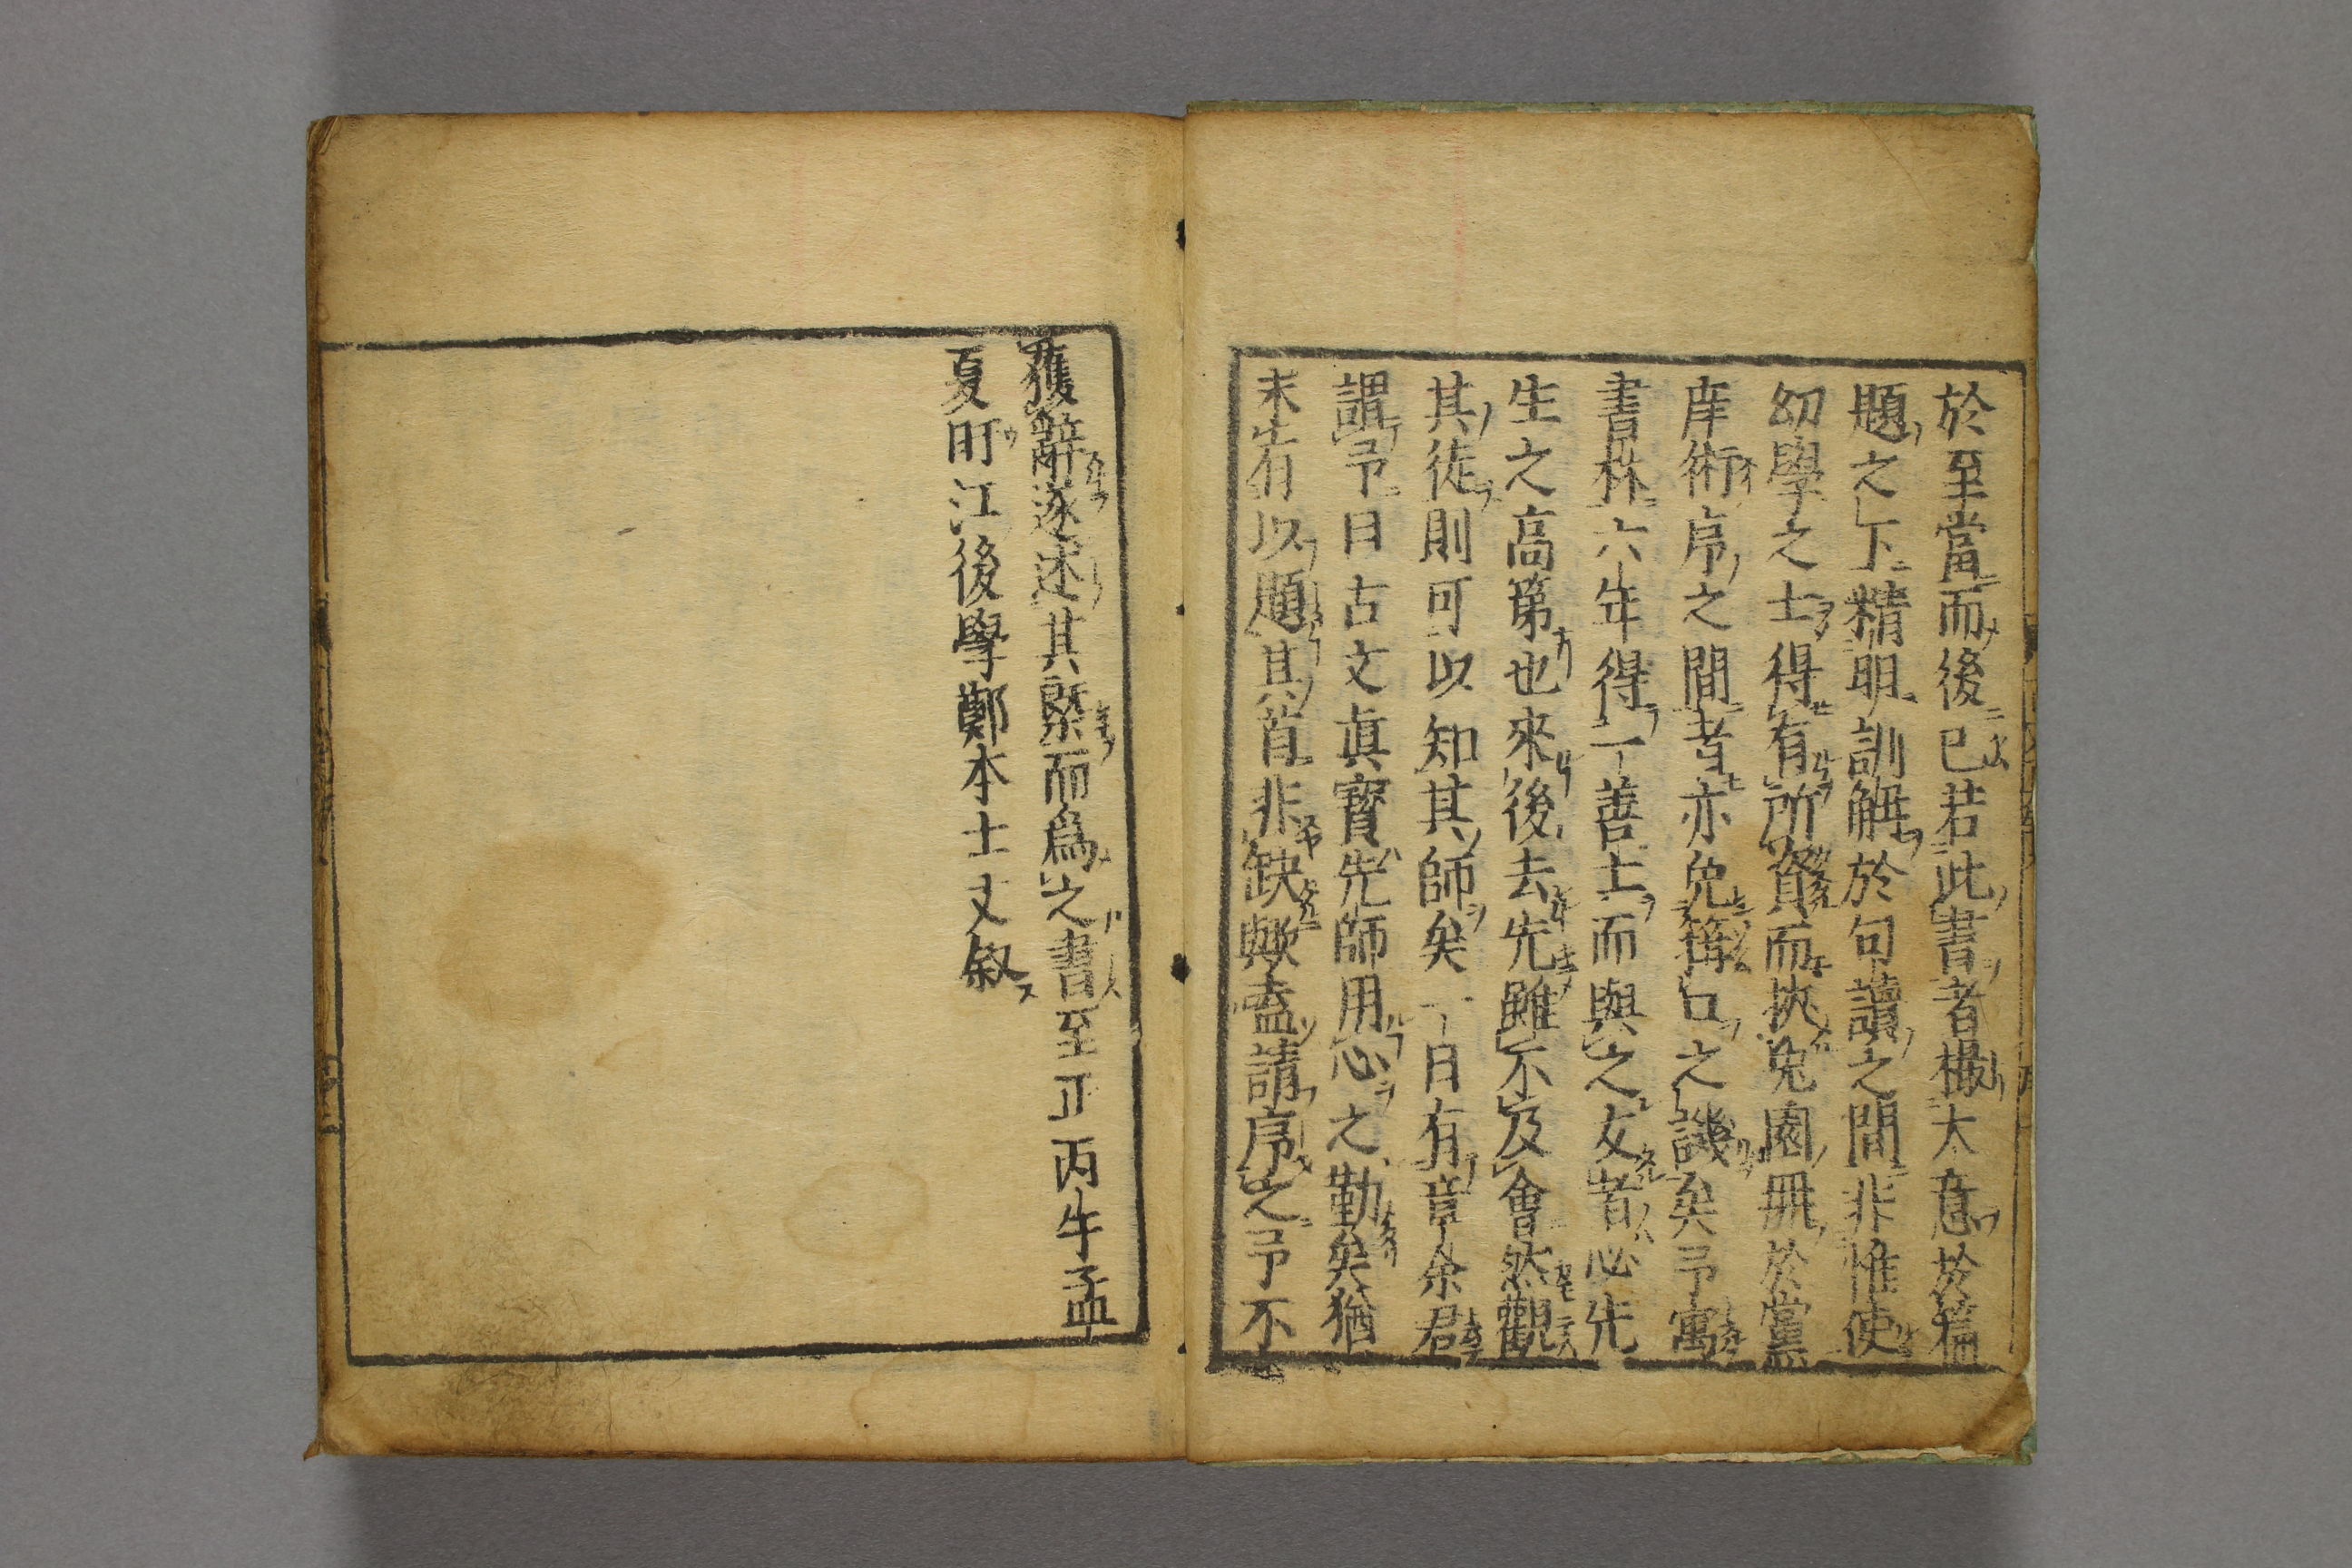 於至當而後已若此書者揭大意於篇
題之下精明訓解於句讀之間非惟使
幼學之士得有所資而挾兔園冊於黨
庠術序之間者亦免箝口之譏矣予寓
書林六年得一善士而與之友者必先
生之高第也來後去先雖不及會然觀
其徒則可以知其師矣一日有章余君
謂予曰古文眞寳先師用心之勤矣猶
未有以題其首非缺歟盍請序之予不
獲辭遂述其槩而爲之書至正丙午孟
夏旴江後學鄭本士文叙